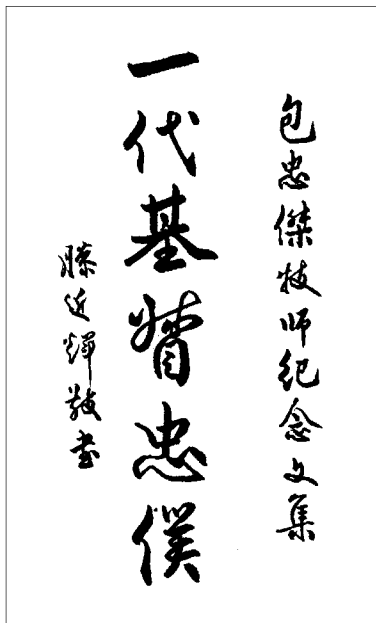 包忠傑牧師紀念文集
一代基督忠僕
滕近輝敬書